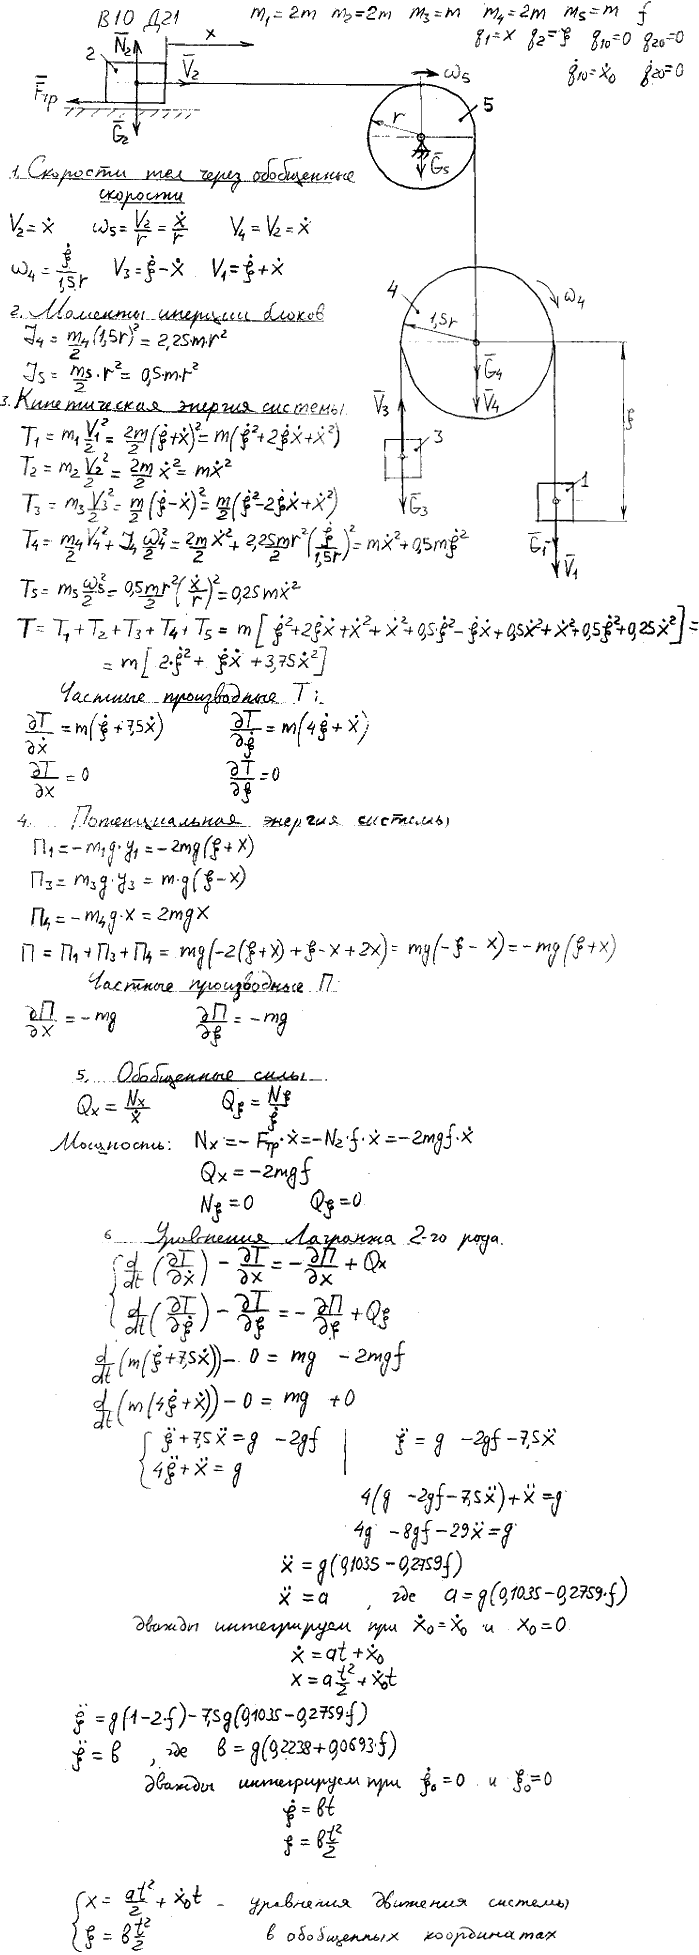 В10 Д21 m₁=2m m₂=2m m₃=m m₄=2m m₅=m f
q₁=x q₂=ξ q₁₀=0 q₂₀=0
q̇₁₀=ẋ₀ q̇₂₀=0
N̄₂ x
2 V̄₂ ω₅
F̄тр 5
r
Ḡ₂ Ḡ₅
1. Скорости тел через обобщенные
скорости
V₂=ẋ ω₅=V₂/r=ẋ/r V₄=V₂=ẋ
ω₄=ξ̇/1,5r V₃=ξ̇-ẋ V₁=ξ̇+ẋ
4 ω₄
1,5r
2. Моменты инерции блоков
J₄=m₄/2(1,5r)²=2,25m·r²
J₅=m₅/2·r²=0,5m·r²
Ḡ₄
V̄₃ V̄₄ ξ
3. Кинетическая энергия системы
T₁=m₁V₁²/2=2m/2(ξ̇+ẋ)²=m(ξ̇²+2ξ̇ẋ+ẋ²)
3
T₂=m₂V₂²/2=2m/2 ẋ²=mẋ²
1
T₃=m₃V₃²/2=m/2(ξ̇-ẋ)²=m/2(ξ̇²-2ξ̇ẋ+ẋ²)
Ḡ₃
T₄=m₄/2 V₄²+J₄ω₄²/2=2m/2 ẋ²+2,25mr²/2(ξ̇/1,5r)²=mẋ²+0,5mξ̇²
Ḡ₁ V̄₁
T₅=m₅ω₅²/2=0,5mr²/2(ẋ/r)²=0,25mẋ²
T=T₁+T₂+T₃+T₄+T₅=m[ξ̇²+2ξ̇ẋ+ẋ²+ẋ²+0,5·ξ̇²-ξ̇ẋ+0,5ẋ²+ẋ²+0,5ξ̇²+0,25ẋ²]=
=m[2·ξ̇²+ξ̇ẋ+3,75ẋ²]
Частные производные T:
∂T/∂ẋ=m(ξ̇+7,5ẋ) ∂T/∂ξ̇=m(4ξ̇+ẋ)
∂T/∂x=0 ∂T/∂ξ=0
4. Потенциальная энергия системы
П₁=-m₁g·y₁=-2mg(ξ+x)
П₃=m₃g·y₃=m·g(ξ-x)
П₄=-m₄g·x=2mgx
П=П₁+П₃+П₄=mg(-2(ξ+x)+ξ-x+2x)=mg(-ξ-x)=-mg(ξ+x)
Частные производные П:
∂П/∂x=-mg ∂П/∂ξ=-mg
5. Обобщенные силы
Qₓ=Nₓ/ẋ Qξ=Nξ/ξ̇
Мощность: Nₓ=-Fтр·ẋ=-N₂·f·ẋ=-2mgf·ẋ
Qₓ=-2mgf
Nξ=0 Qξ=0
6 Уравнения Лагранжа 2-го рода.
{d/dt(∂T/∂ẋ)-∂T/∂x=-∂П/∂x+Qₓ
d/dt(∂T/∂ξ̇)-∂T/∂ξ=-∂П/∂ξ+Qξ
d/dt(m(ξ̇+7,5ẋ))-0=mg -2mgf
d/dt(m(4ξ̇+ẋ))-0=mg +0
{ξ̈+7,5ẍ=g -2gf | ξ̈=g -2gf-7,5ẍ
4ξ̈+ẍ=g
4(g -2gf-7,5ẍ)+ẍ=g
4g -8gf-29ẍ=g
ẍ=g(0,1035-0,2759f)
ẍ=a , где a=g(0,1035-0,2759·f)
дважды интегрируем при ẋ₀=ẋ₀ и x₀=0
ẋ=at+ẋ₀
x=at²/2+ẋ₀t
ξ̈=g(1-2·f)-7,5g(0,1035-0,2759·f)
ξ̈=b , где b=g(0,2238+0,0693·f)
дважды интегрируем при ξ̇₀=0 и ξ₀=0
ξ̇=bt
ξ=bt²/2
{x=at²/2+ẋ₀t - уравнения движения системы
ξ=bt²/2 в обобщенных координатах